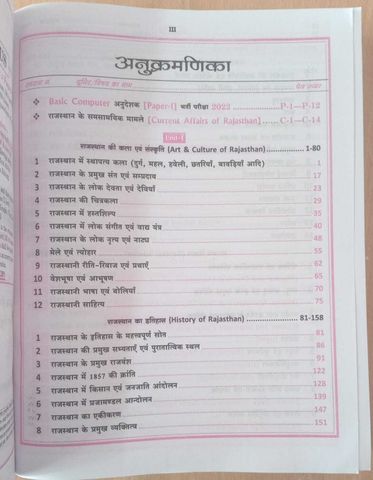 III
अनुक्रमणिका
अध्याय सं. यूनिट/विषय का नाम पेज नम्बर
❖ Basic Computer अनुदेशक [Paper-I] भर्ती परीक्षा 2022 ........ P-1—P-12
❖ राजस्थान के समसामयिक मामले [Current Affairs of Rajasthan] ...... C-1—C-14
Unit-I
राजस्थान की कला एवं संस्कृति (Art & Culture of Rajasthan) ........ 1-80
1 राजस्थान में स्थापत्य कला (दुर्ग, महल, हवेली, छतरियाँ, बावड़ियाँ आदि) ........ 1
2 राजस्थान के प्रमुख संत एवं सम्प्रदाय ........ 17
3 राजस्थान के लोक देवता एवं देवियाँ ........ 23
4 राजस्थान की चित्रकला ........ 29
5 राजस्थान में हस्तशिल्प ........ 35
6 राजस्थान में लोक संगीत एवं वाद्य यंत्र ........ 40
7 राजस्थान के लोक नृत्य एवं नाट्य ........ 48
8 मेले एवं त्योहार ........ 55
9 राजस्थानी रीति-रिवाज एवं प्रथाएँ ........ 62
10 वेशभूषा एवं आभूषण ........ 65
11 राजस्थानी भाषा एवं बोलियाँ ........ 70
12 राजस्थानी साहित्य ........ 75
राजस्थान का इतिहास (History of Rajasthan) ........ 81-158
1 राजस्थान के इतिहास के महत्त्वपूर्ण स्रोत ........ 81
2 राजस्थान की प्रमुख सभ्यताएँ एवं पुरातात्विक स्थल ........ 86
3 राजस्थान के प्रमुख राजवंश ........ 91
4 राजस्थान में 1857 की क्रांति ........ 122
5 राजस्थान में किसान एवं जनजाति आंदोलन ........ 128
6 राजस्थान में प्रजामण्डल आन्दोलन ........ 139
7 राजस्थान का एकीकरण ........ 147
8 राजस्थान के प्रमुख व्यक्तित्व ........ 151